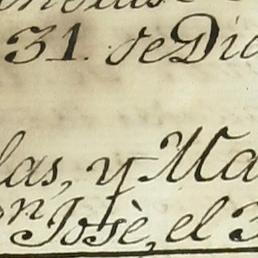 31. de Dic
las, y Ma
n Josè, el 3